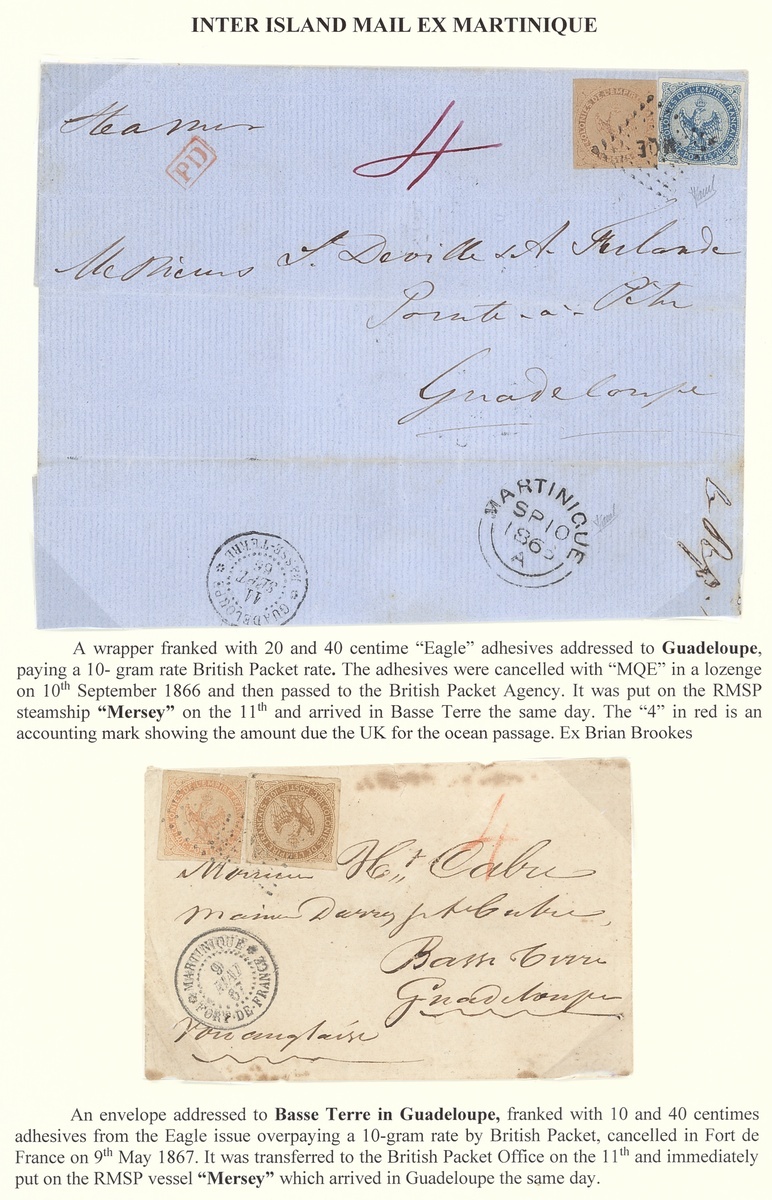 INTER ISLAND MAIL EX MARTINIQUE
Steamer
PD
4
COLONIES DE L'EMPIRE FRANÇAIS
POSTES
MQE
Messieurs S. Deville & A.
Pointe-à-Pitre
Guadeloupe
MARTINIQUE
SP 10
186
A
GUADELOUPE
BASSE-TERRE
11
SEPT
66
A wrapper franked with 20 and 40 centime “Eagle” adhesives addressed to Guadeloupe,
paying a 10- gram rate British Packet rate. The adhesives were cancelled with “MQE” in a lozenge
on 10th September 1866 and then passed to the British Packet Agency. It was put on the RMSP
steamship “Mersey” on the 11th and arrived in Basse Terre the same day. The “4” in red is an
accounting mark showing the amount due the UK for the ocean passage. Ex Brian Brookes
4
Monsieur Ht Cabre
Basse Terre
Guadeloupe
MARTINIQUE
9
MAI
67
FORT-DE-FRANCE
Voie anglaise
An envelope addressed to Basse Terre in Guadeloupe, franked with 10 and 40 centimes
adhesives from the Eagle issue overpaying a 10-gram rate by British Packet, cancelled in Fort de
France on 9th May 1867. It was transferred to the British Packet Office on the 11th and immediately
put on the RMSP vessel “Mersey” which arrived in Guadeloupe the same day.